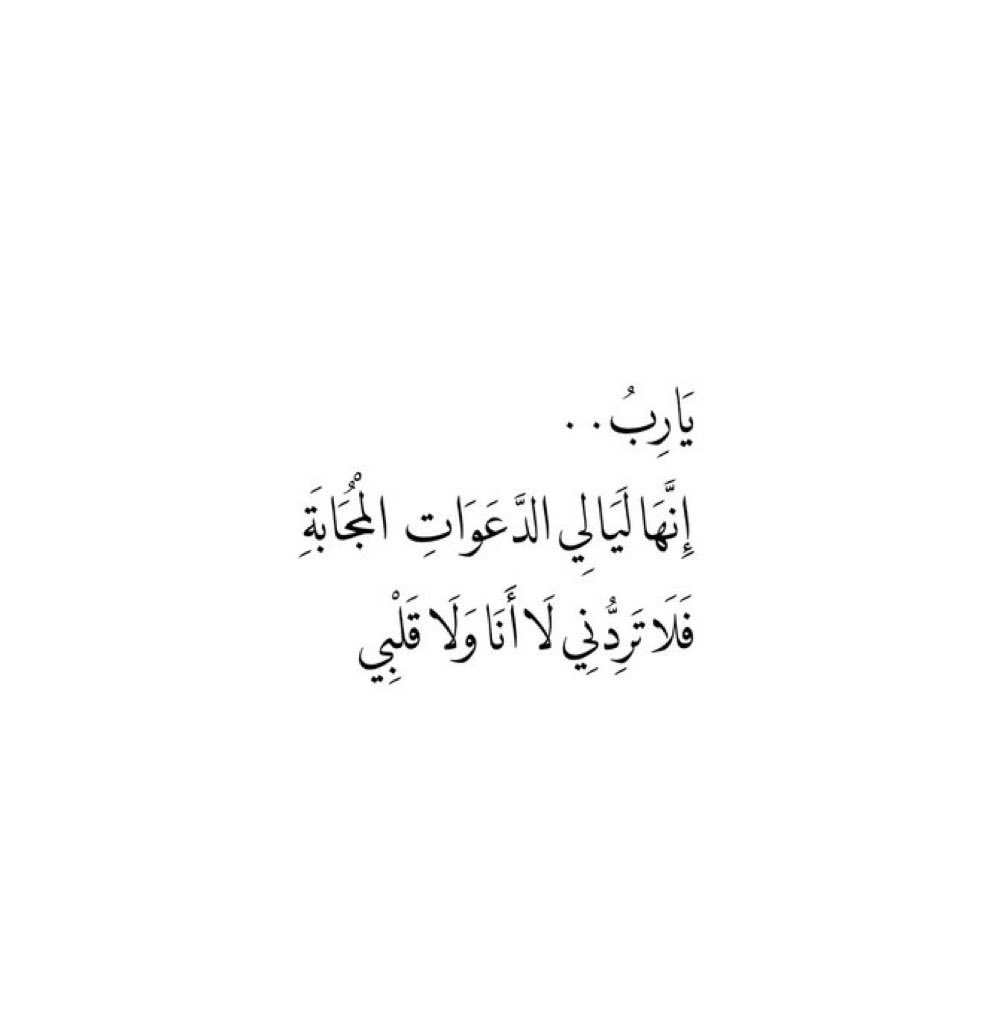 يَارِبُ..
إِنَّهَا لَيَالِي الدَّعَوَاتِ الْمُجَابَةِ
فَلَا تَرِدُّنِي لَا أَنَا وَلَا قَلْبِي